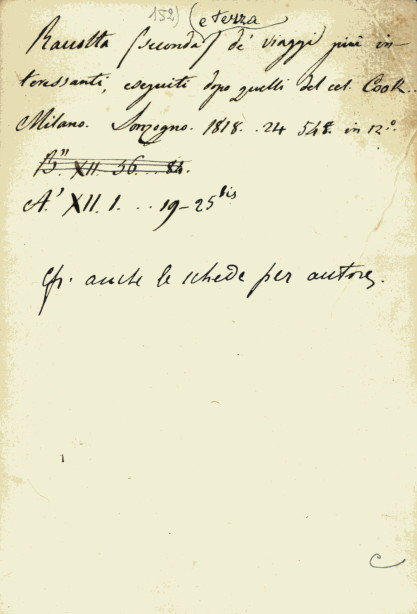 152) (e terza
Raccolta (seconda) de' viaggi più in-
teressanti, eseguiti dopo quelli del cel. Cook..
Milano. Sonzogno. 1818. . 24 in 12°.
B" XII. 56. . . 84.
A' XII. 1. . . 19-25 bis
Cfr. anche le schede per autore.
C